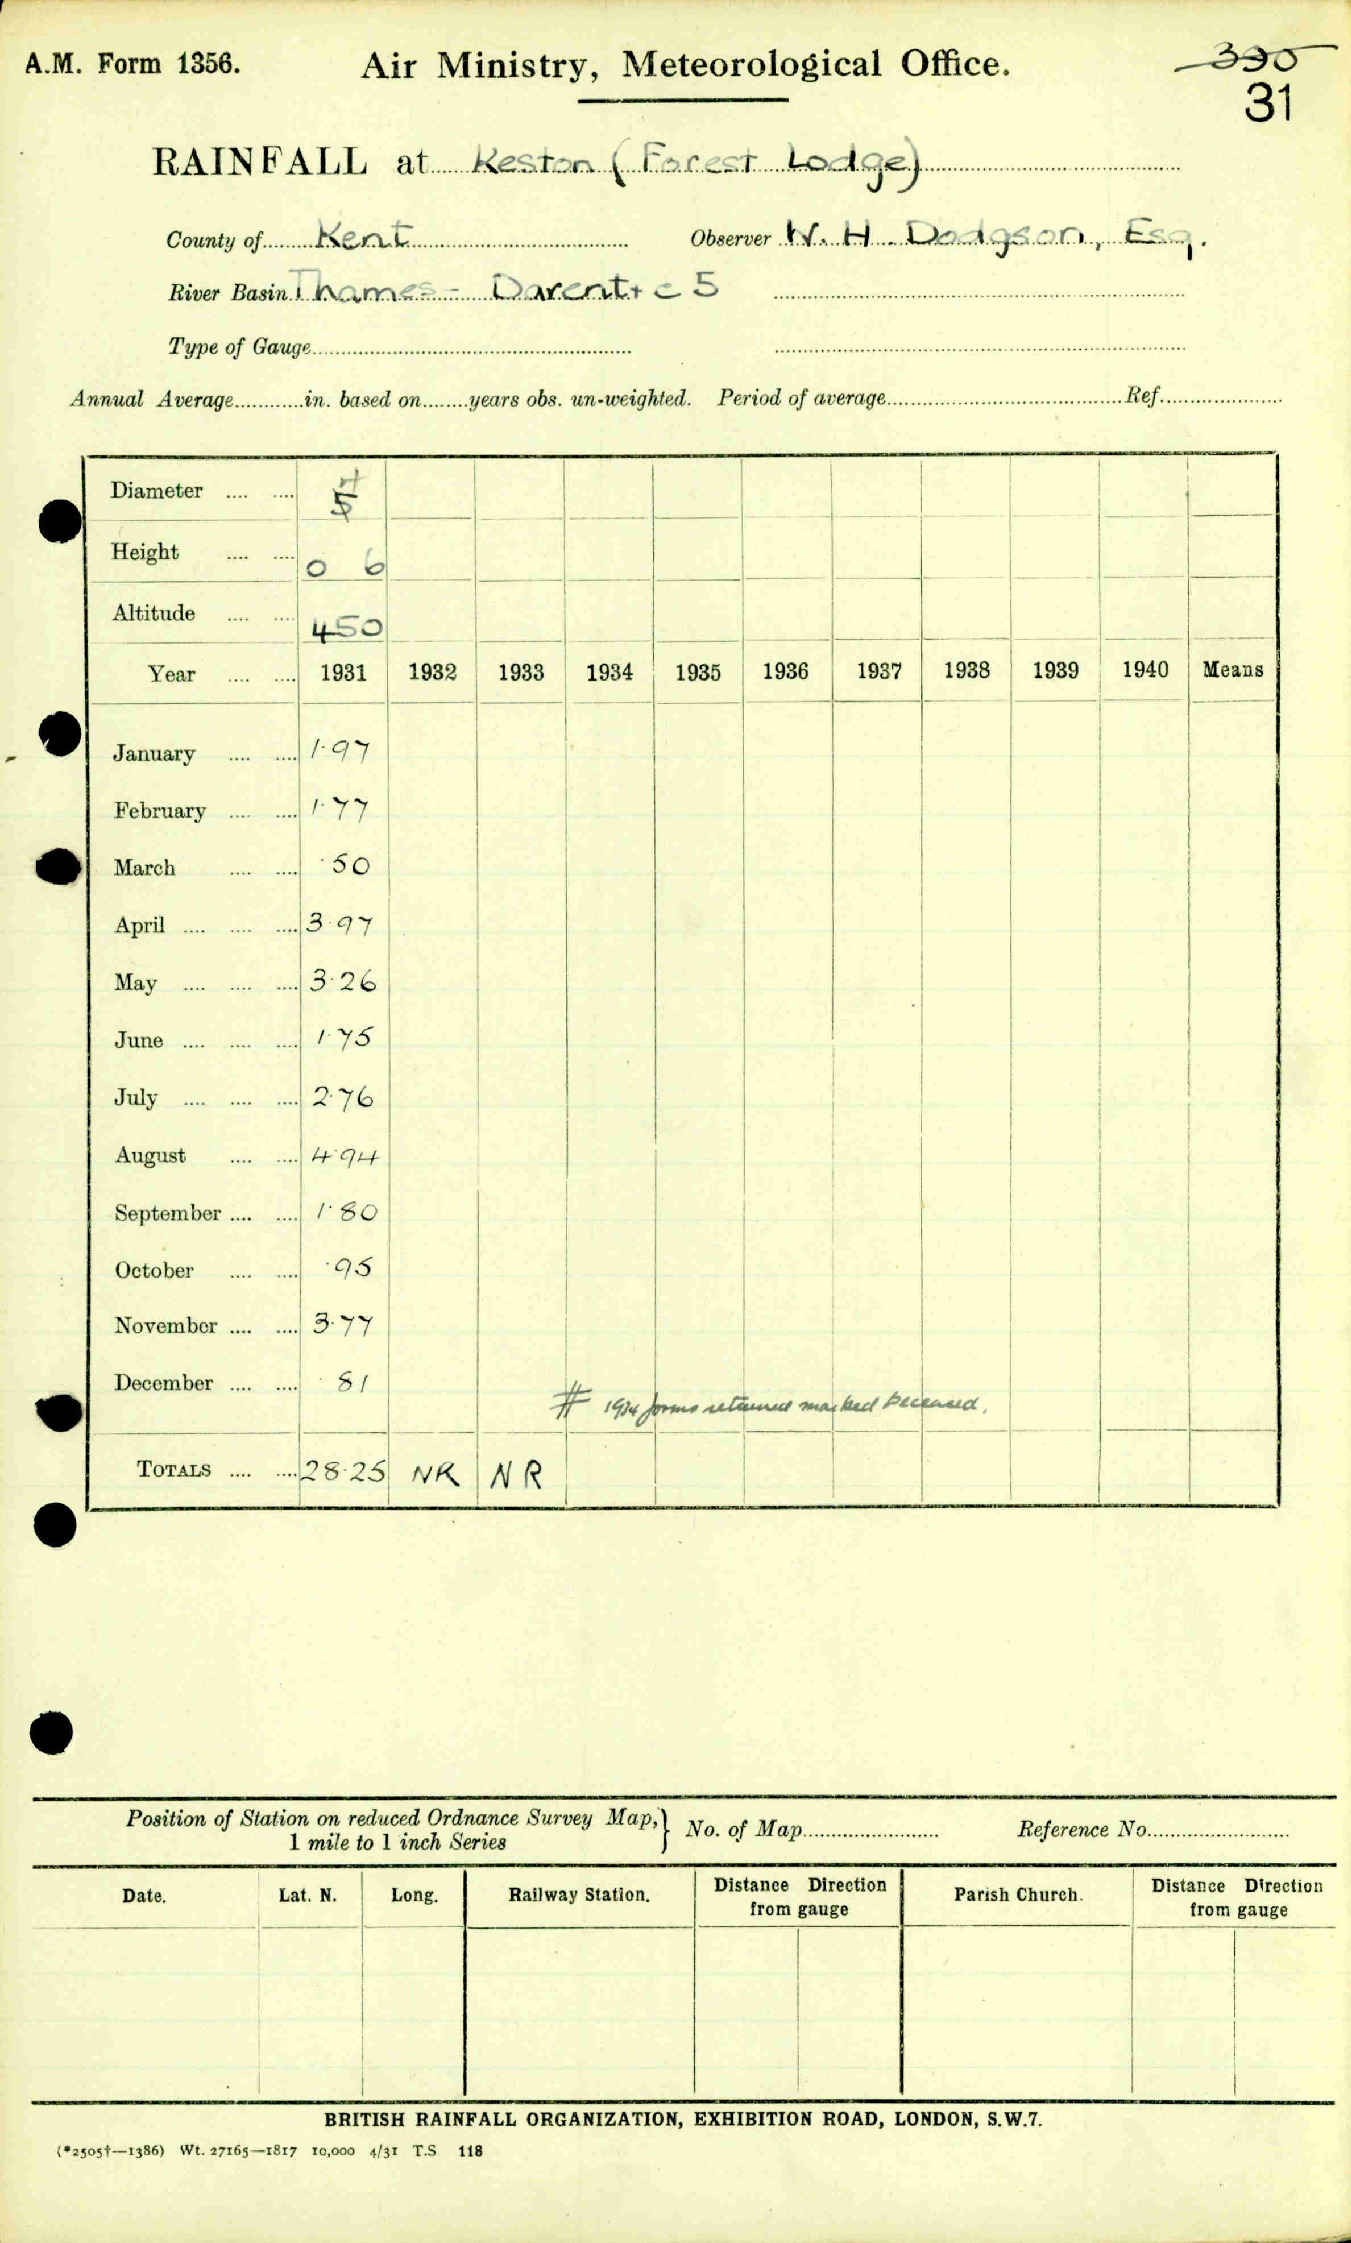 A.M. Form 1356.
Air Ministry, Meteorological Office.
330
31
RAINFALL at Keston (Forest Lodge)
County of Kent
Observer W. H. Dodgson, Esq.
River Basin Thames - Darent + c 5
Type of Gauge
Annual Average in. based on years obs. un-weighted. Period of average Ref.
Diameter 5
Height 0 6
Altitude 450
Year 1931 1932 1933 1934 1935 1936 1937 1938 1939 1940 Means
January 1.97
February 1.77
March .50
April 3.97
May 3.26
June 1.75
July 2.76
August 4.94
September 1.80
October .95
November 3.77
December .81
# 1934 forms returned marked Deceased.
TOTALS 28.25 NR NR
Position of Station on reduced Ordnance Survey Map, } No. of Map Reference No.
1 mile to 1 inch Series
Date. Lat. N. Long. Railway Station. Distance Direction from gauge Parish Church. Distance Direction from gauge
BRITISH RAINFALL ORGANIZATION, EXHIBITION ROAD, LONDON, S.W.7.
(*2505†—1386) Wt. 27165—1817 10,000 4/31 T.S 118